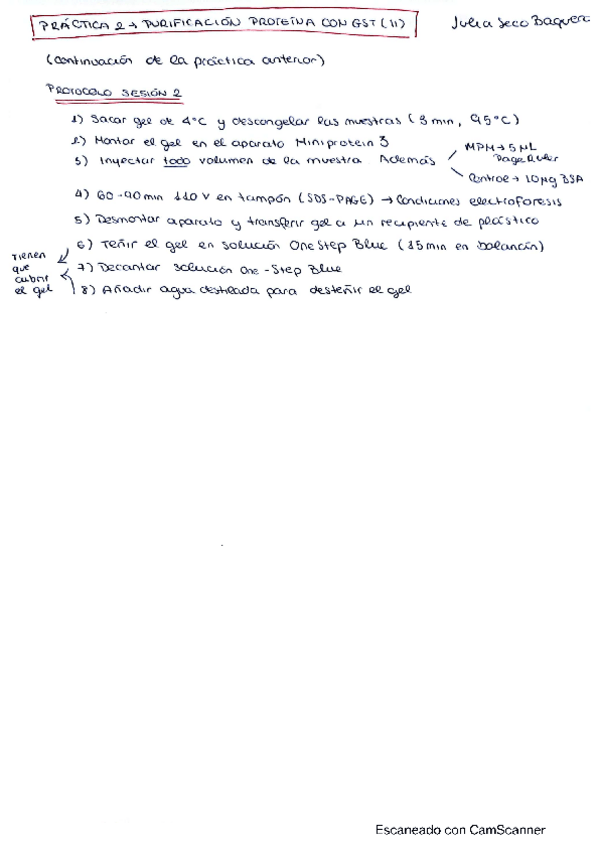 PRÁCTICA 2 → PURIFICACIÓN PROTEÍNA CON GST (II)
Julia Seco Baquero
(continuación de la práctica anterior)
PROTOCOLO SESIÓN 2
1) Sacar gel de 4°C y descongelar las muestras (3 min, 95°C)
2) Montar el gel en el aparato Miniprotein 3
3) Inyectar todo volumen de la muestra. Además
MPM → 5 µL
PageRuler
Control → 10 µg BSA
4) 60-90 min 110 V en tampón (SDS-PAGE) → Condiciones electroforesis
5) Desmontar aparato y transferir gel a un recipiente de plástico
6) Teñir el gel en solución One Step Blue (15 min en balancín)
7) Decantar solución One-Step Blue
8) Añadir agua destilada para desteñir el gel
TIENEN
que
cubrir
el gel
Escaneado con CamScanner